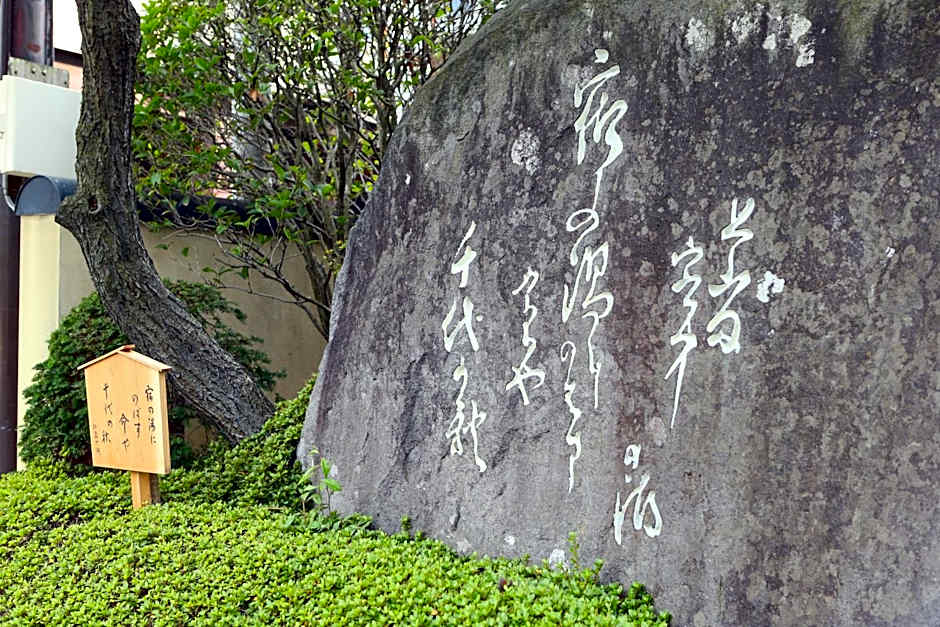 の湯
宿の湯にのばす
命や
千代の秋
宿の湯に
のばす
命や
千代の秋